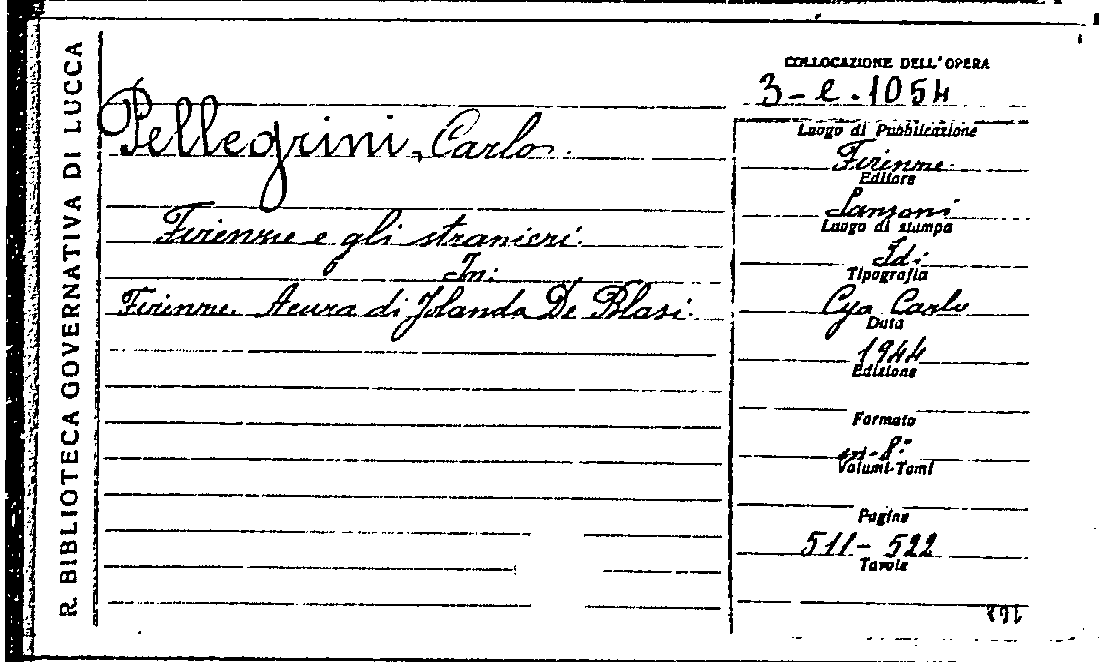 R. BIBLIOTECA GOVERNATIVA DI LUCCA
COLLOCAZIONE DELL'OPERA
3-e.1054
Pellegrini, Carlo.
Firenze e gli stranieri.
In:
Firenze. A cura di Jolanda De Blasi.
Luogo di Pubblicazione
Firenze
Editore
Sansoni
Luogo di stampa
Id.
Tipografia
Cya Carlo
Data
1944
Edizione
Formato
in-8°
Volumi-Tomi
Pagine
511-522
Tavole